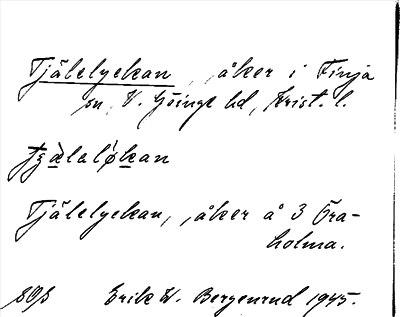 Tjälelyckan, åker i Finja
sn, V. Göinge hd, Krist. l.
Tjälelyckan, åker å 3 Öra-
holma.
Erik W. Bergenrud 1945.